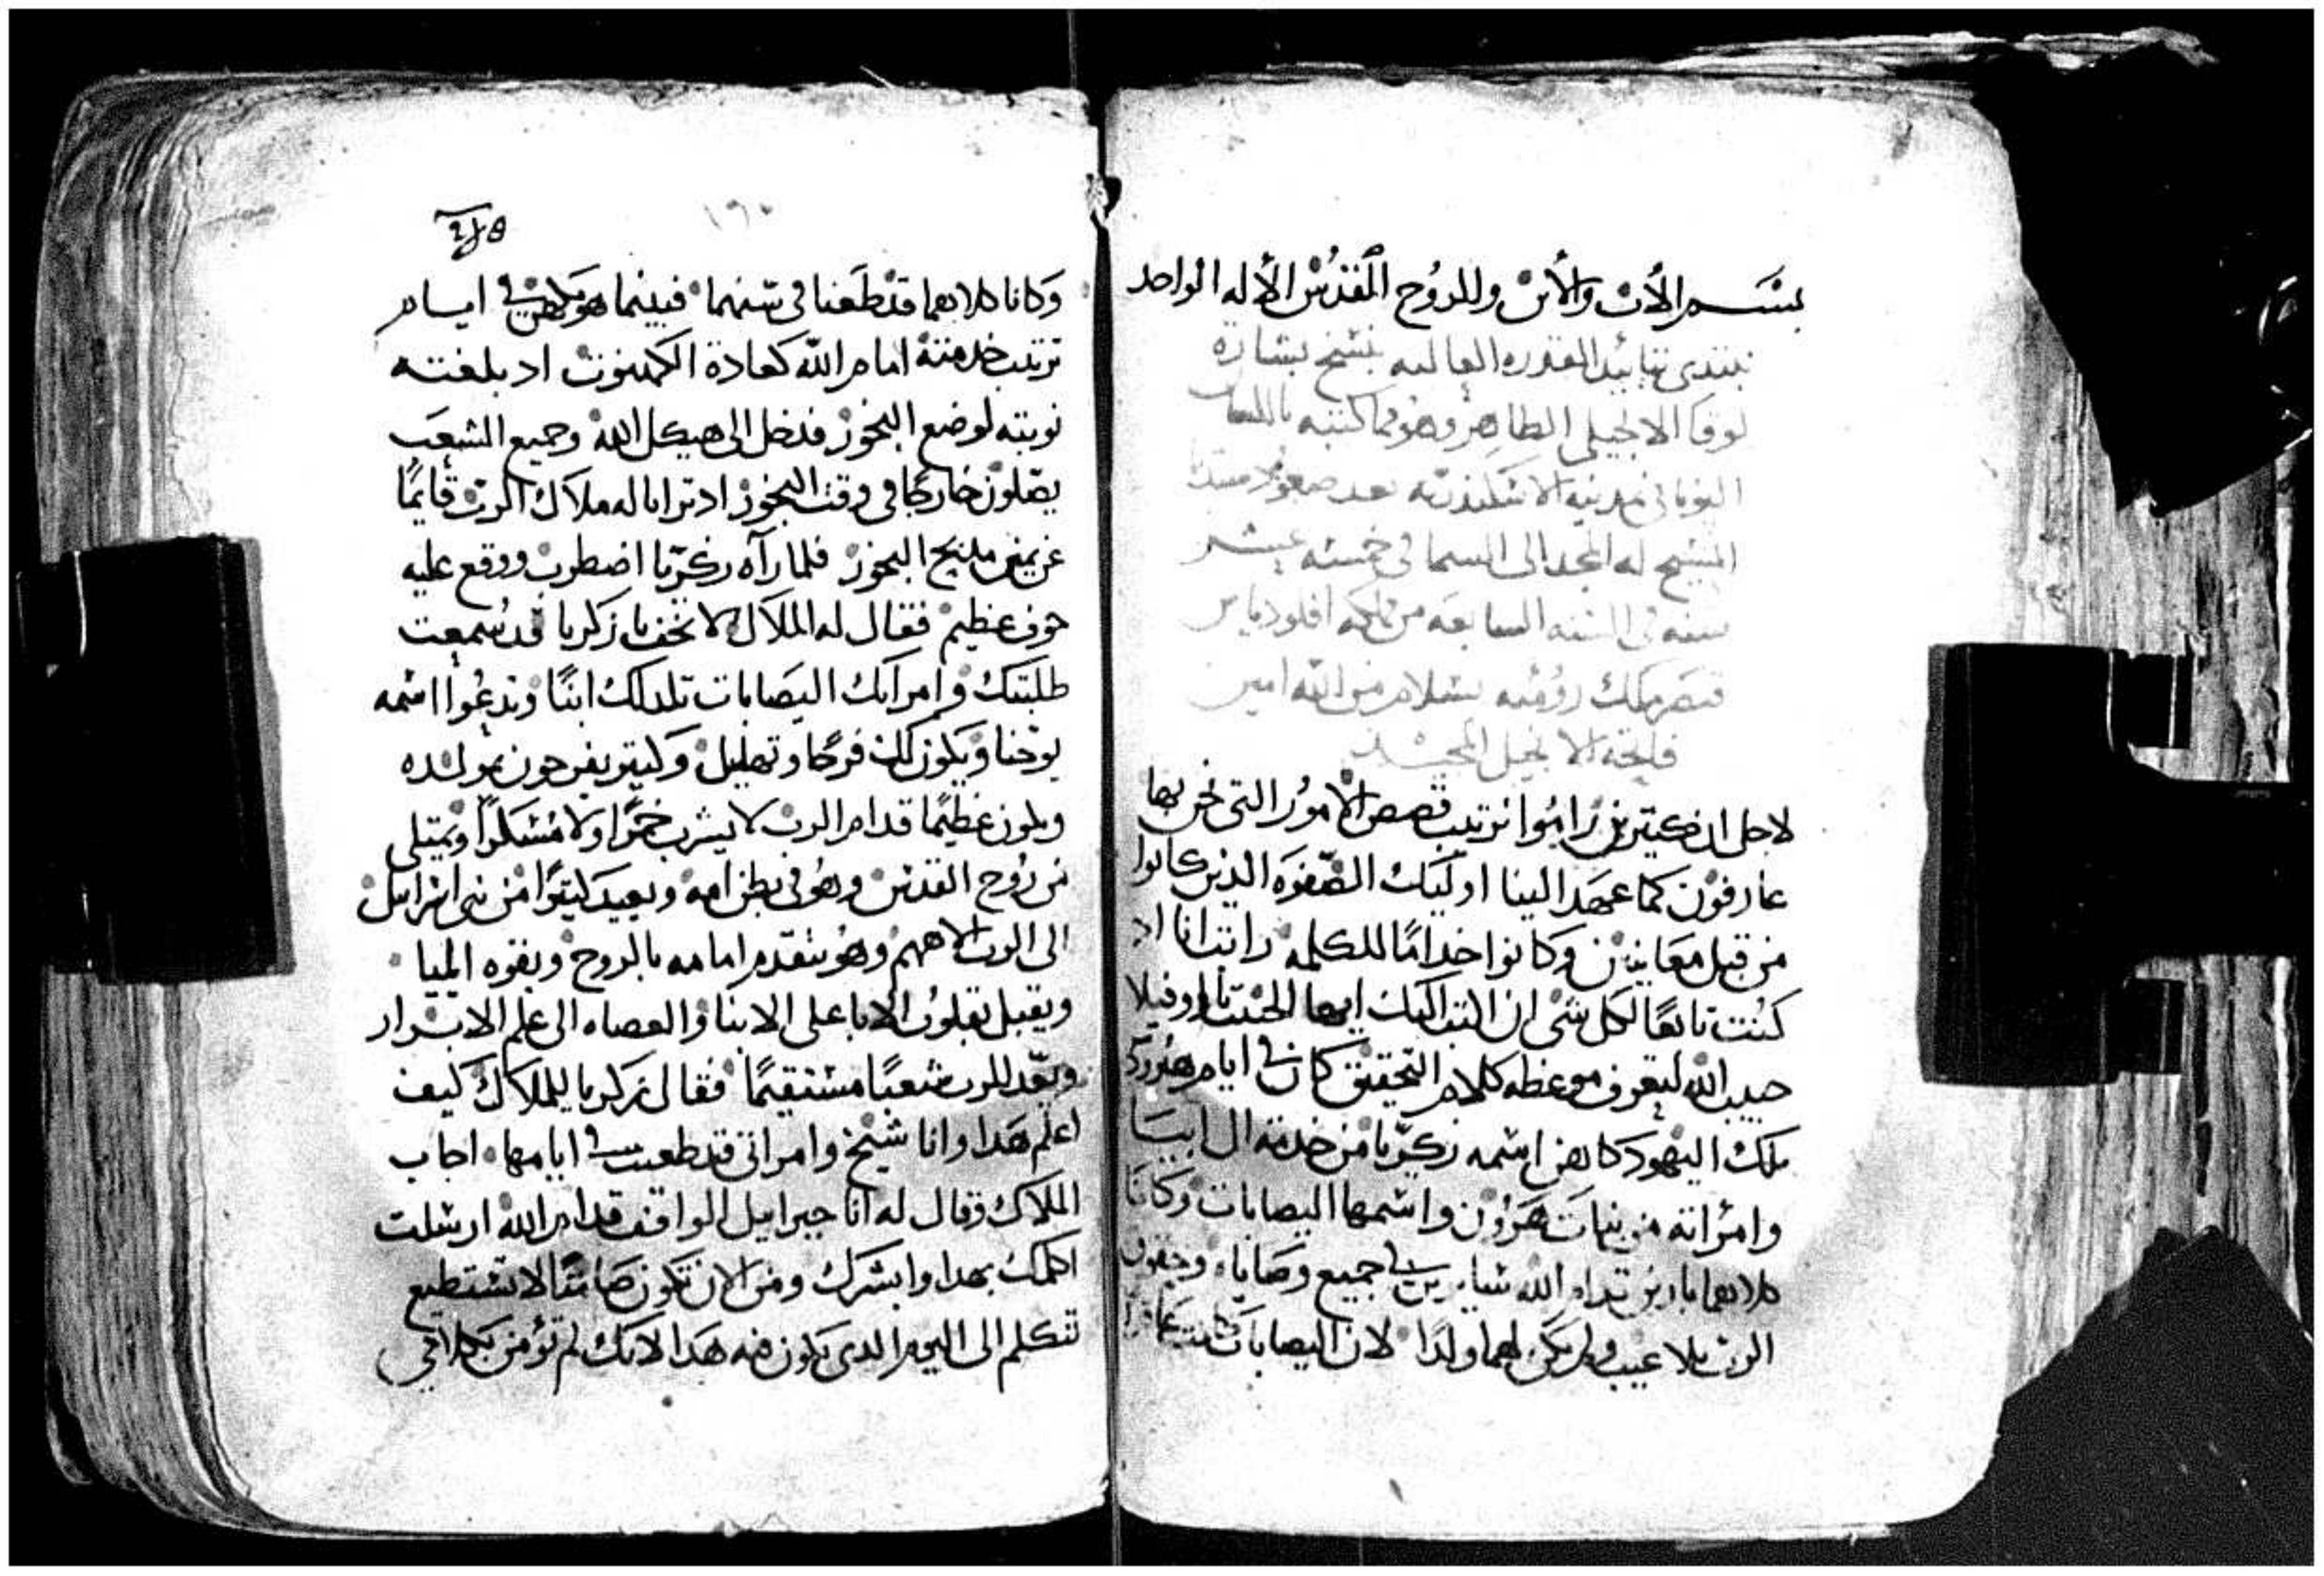 بسم الاب والابن والروح القدس الاله الواحد
نبتدى بتاييد القدره العاليه بنسخ بشارة
لوقا الانجيلى الطاهر وهو مما كتبه باللسان
اليونانى فى مدينه الاسكندريه بعد صعود
المسيح له المجد الى السما فى خمسه عشر
سنه فى السنه السابعه من ملكه اقلوديا
قيصر ملك روميه بسلام من الله امين
فاتحة الانجيل المجيد
لاجل ان كتيرين راموا ترتيب قصص الامور التى نحن بها
عارفون كما عهد الينا اوليك الصفوه الذين كانوا
من قبل معاينين وكانوا خداما للكلمه رايت انا اد
كنت تابعا لكل شى ان اكتب اليك ايها تاوفيلا
حبيب الله لتعرف موعظه كلام التحقيق كان فى ايام هيرودس
ملك اليهود كاهن اسمه زكريا من خدمة ال ابيا
وامراته من بنات هرون واسمها اليصابات وكانا
كلاهما بارين قدام الله سايرين فى جميع وصاياه وحقوق
الرب بلا عيب ولم يكن لهما ولدا لان اليصابات كانت عاقرا
وكانا كلاهما قد طعنا فى سنهما فبينما هو يكهن فى ايام
ترتيب خدمته امام الله كعادة الكهنوت اد بلغته
نوبته لوضع البخور فدخل الى هيكل الله وجميع الشعب
يصلون خارجا فى وقت البخور اد ترايا له ملاك الرب قايما
عن يمين مدبح البخور فلما رآه زكريا اضطرب ووقع عليه
خوف عظيم فقال له الملاك لا تخف يا زكريا قد سمعت
طلبتك وامراتك اليصابات تلد لك ابنا وتدعوا اسمه
يوحنا ويكون لك فرحا وتهليل وكتير يفرحون بمولده
ويكون عظيما قدام الرب لا يشرب خمرا ولا مسكرا ويمتلى
من روح القدس وهو فى بطن امه ويعيد كتيرا من بنى اسراييل
الى الرب الاههم وهو يتقدم امامه بالروح وبقوه ايليا
ويقبل بقلوب الابا على الابنا والعصاه الى علم الابرار
ويعد للرب شعبا مستقيما فقال زكريا للملاك كيف
اعلم هدا وانا شيخ وامراتى قد طعنت فى ايامها اجاب
الملاك وقال له انا جبراييل الواقف قدام الله ارسلت
اكلمك بهدا وابشرك ومن الان تكون صامتا لا تستطيع
تتكلم الى اليوم الدى يكون فيه هدا لانك لم تؤمن بكلامى